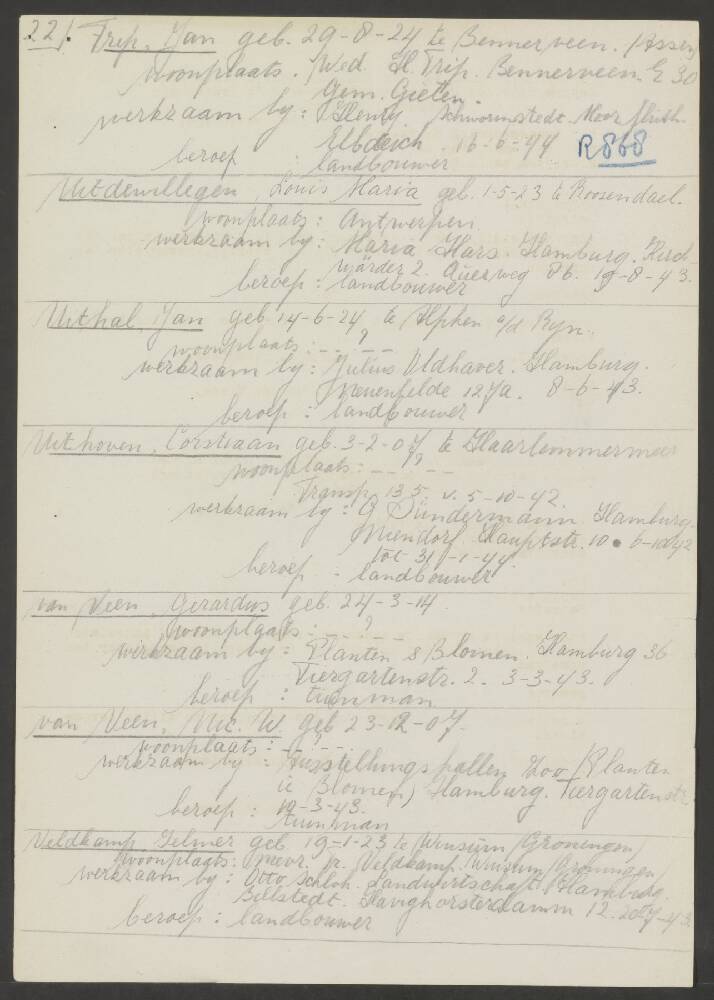 22). Trip, Jan geb. 29-8-24 te Bennerveen. /Assen
woonplaats. Wed. H. Trip. Bennerveen E 30
Gem. Gieten.
werkzaam by: Schwormstedt. Moor
Elbdeich 16-6-44 R868
beroep : landbouwer
Uitdewillegen, Louis Maria geb. 1-5-23 te Roosendael.
woonplaats: Antwerpen
werkzaam by: Maria Hars. Hamburg. Kirch
wärder 2. Auerweg 86. 19-8-43.
beroep: landbouwer
Uithal, Jan geb 14-6-24 te Alphen a/d Ryn.
woonplaats: - - ? - -
werkzaam by: Julius Oldhaver. Hamburg.
Neuenfelde 127a. 8-6-43.
beroep : landbouwer
Uithoven, Corstiaan geb. 3-2-07, te Haarlemmermeer
woonplaats: - - ? - -
Transp. 135. v. 5-10-42.
werkzaam by: G Dündermann Hamburg-
Niendorf. Hauptstr. 10. 6-10-42
tot 31-1-44
beroep - landbouwer
van Veen, Gerardus geb. 24-3-14.
woonplaats: - - ? - -
werkzaam by: Planten & Blomen. Hamburg 36
Tiergartenstr. 2. 3-3-43.
beroep : tuinman
van Veen, Nic. W. geb 23-12-07.
woonplaats: - - ? - -
werkzaam by : Ausstellungshallen Zoo (Planten
u Blomen) Hamburg. Tiergartenstr.
10-3-43.
beroep : tuinman
Veldkamp, Jelmer geb 19-1-23 te Winsum (Groningen)
woonplaats: Mevr. Veldkamp. Winsum (Groningen)
werkzaam by: Otto Schloh. Landwirtschaft. Hamburg
Billstedt. Havighorsterdamm 12. 20-7-43
beroep: landbouwer